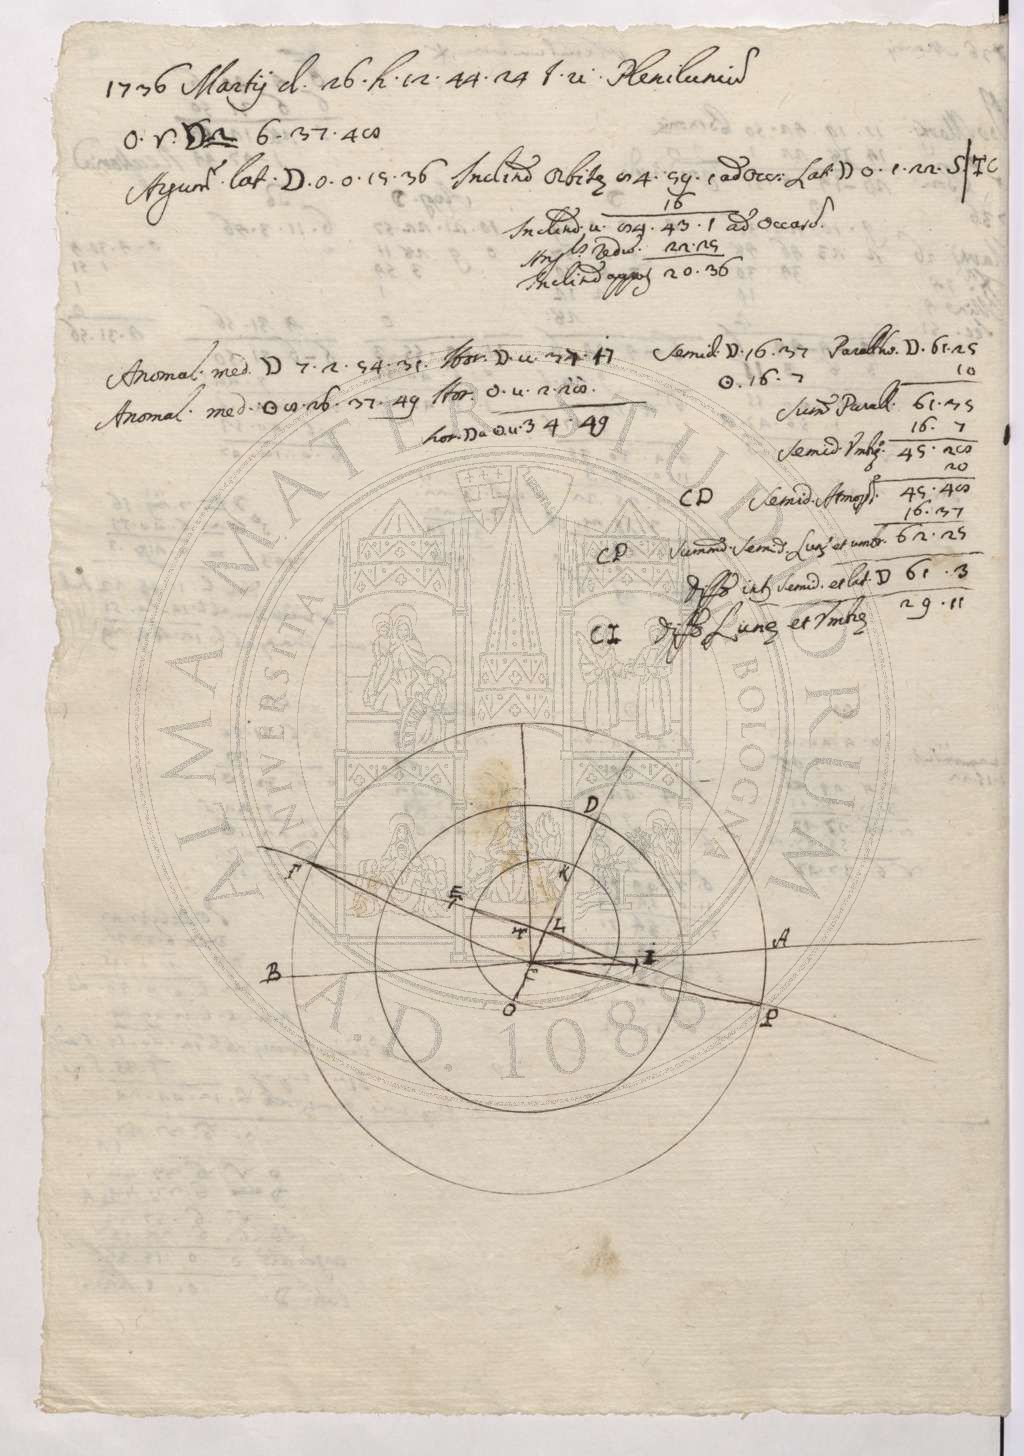 1736 Martij d. 26. h. 12. 44. 24 t. u. Plenilunij
☉. ♈. ☽ ♎ 6. 37. 40
Argum. lat. ☽. 0. 0. 15. 36 Inclin. Orbitæ 5. ad Occ. Lat. ☽ 0. 1. 22. S TC
16
Inclin. u. 43. 1 ad Occas.
22. 25
Inclin. 20. 36
Anomal. med. ☽ 7. 2. 54. 31. Hor. ☽. u. 37. 17
Anomal. med. ☉ 26. 37. 49 Hor. ☉. u. 2. 28.
hor. ☽ a ☉. u. 34. 49
Semid. ☽. 16. 37 Parall. ho. ☽. 61. 25
☉. 16. 7
10
Sum. Parall. 61. 35
16. 7
Semid. Umbr. 45. 28
20
CD Semid. Atmosf. 45. 48
16. 37
CP Summa Semid. Lunæ et umbr. 62. 25
diff. int. Semid. et lat. ☽ 61. 3
CI diff. Lunæ et Umbræ 29. 11
D
F
E
K
T
L
A
I
B
C
O
P
ALMA MATER STUDIORUM
UNIVERSITÀ DI BOLOGNA
A.D. 1088